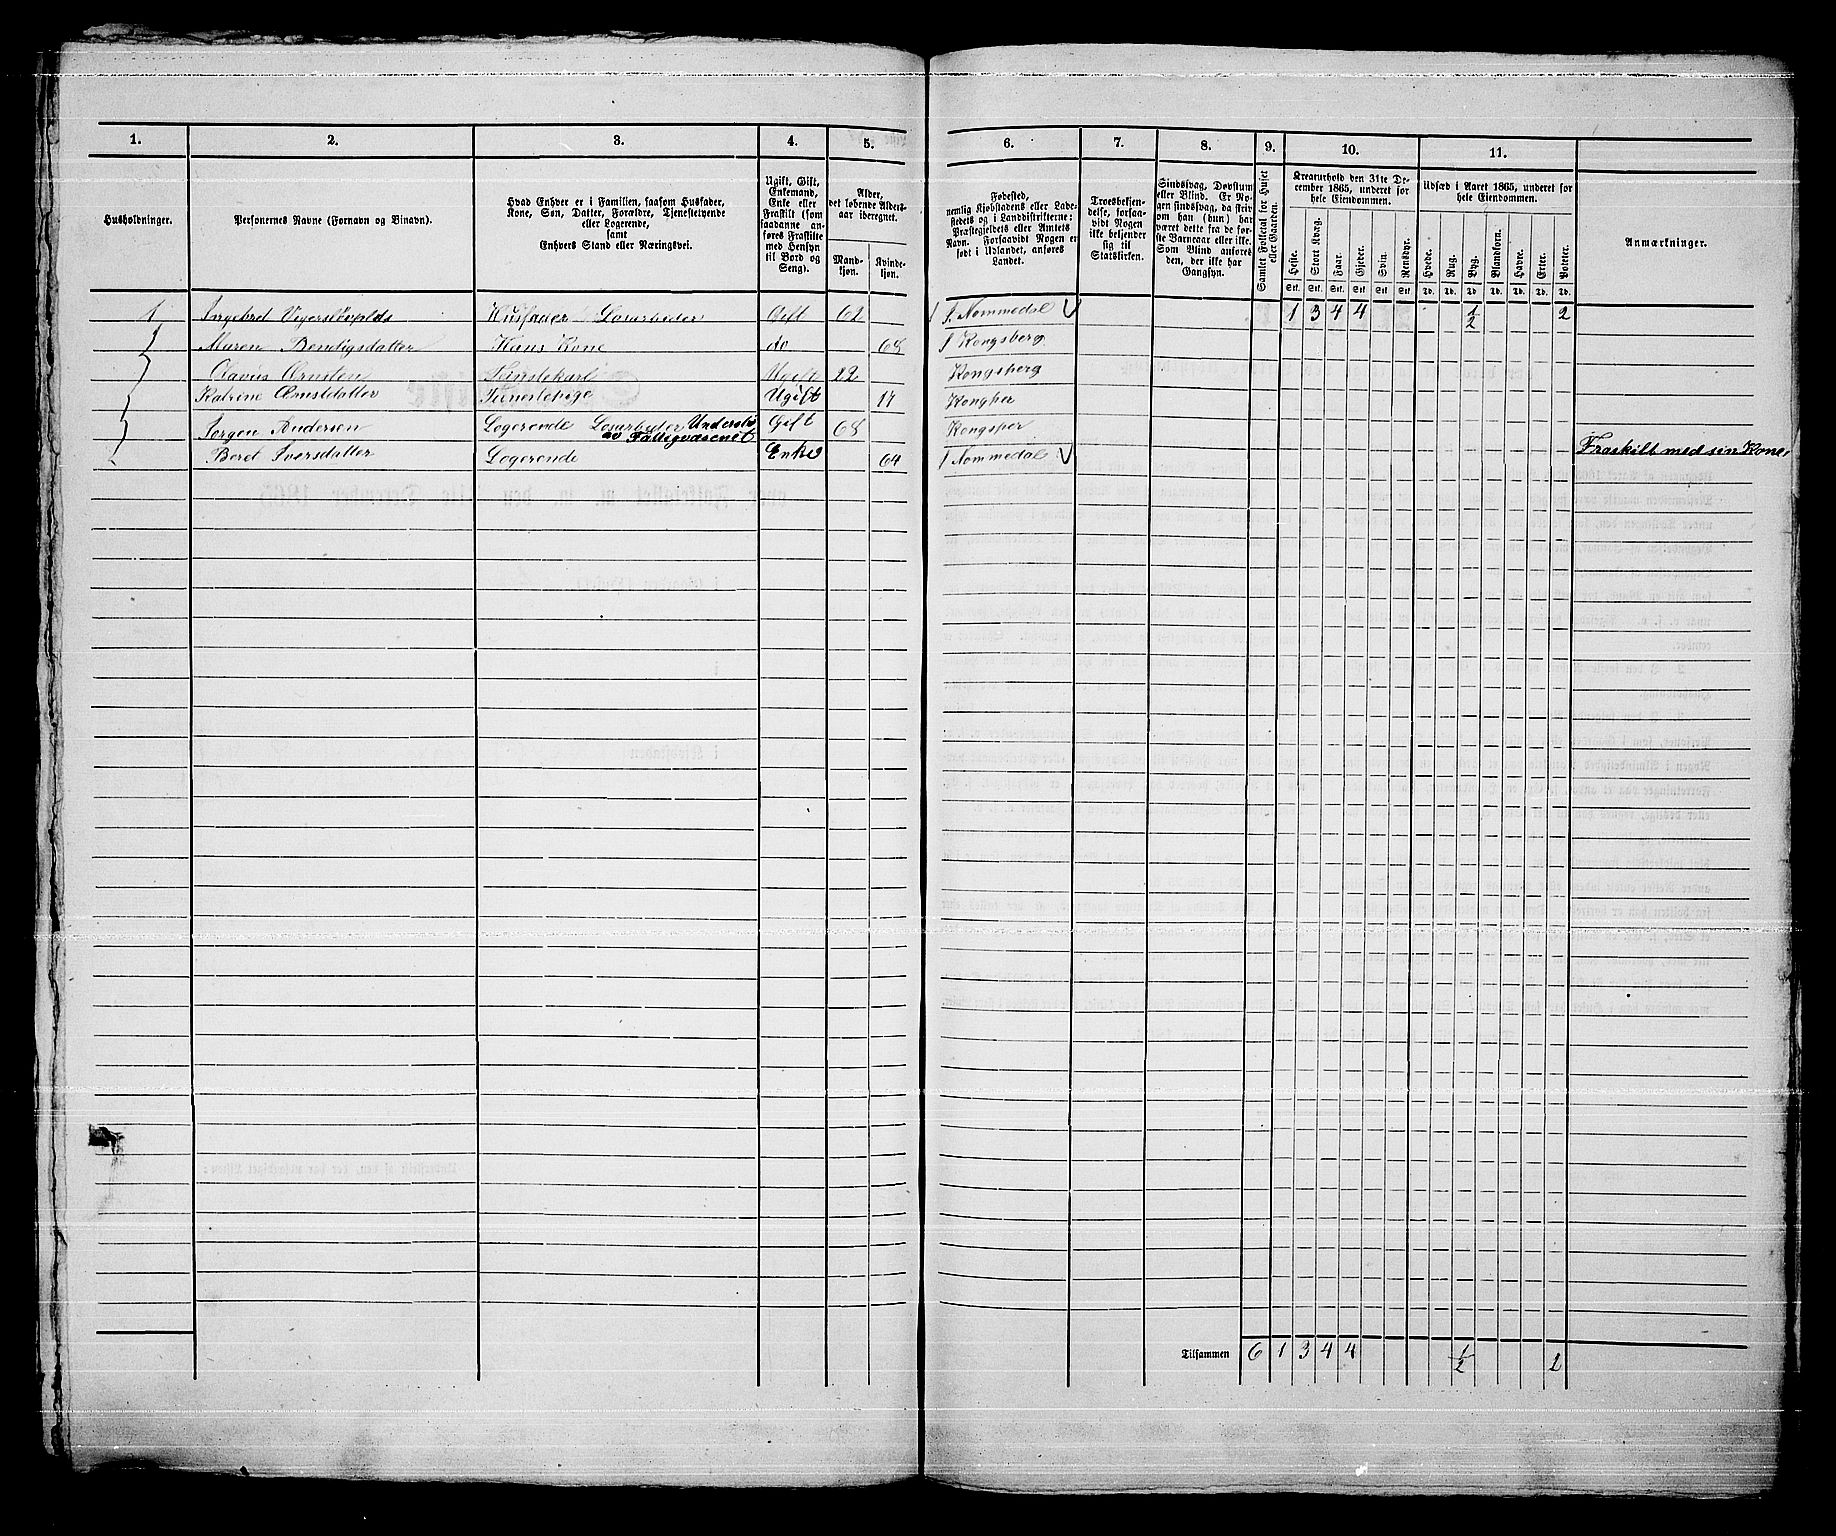 1.
2.
3.
4.
5.
6.
7.
8.
9.
10.
11.
Husholdninger.
Personernes Navne (Fornavn og Binavn).
Hvad Enhver er i Familien, saasom Husfader,
Kone, Søn, Datter, Forældre, Tjenestetyende
eller Logerende,
samt
Enhvers Stand eller Næringsvei.
Ugift, Gift,
Enkemand,
Enke eller
Fraskilt (som
saadanne an-
føres Fraskilte
med Hensyn
til Bord og
Seng).
Alder,
det løbende Alders-
aar iberegnet.
Mand-
kjøn.
Kvinde-
kjøn.
Fødested,
nemlig Kjøbstadens eller Lade-
stedets og i Landdistrikterne:
Præstegjeldets eller Amtets
Navn. Forsaavidt Nogen er
født i Udlandet, anføres
Landet.
Troesbekjen-
delse, forsaa-
vidt Nogen
ikke bekjender
sig til
Statskirken.
Sindssvag, Døvstum
eller Blind. Er No-
gen sindssvag, da skriv
om han (hun) har
været dette fra de før-
ste Barneaar eller ikke.
Som Blind anføres
den, der ikke har
Gangsyn.
Samlet Folketal for Huset
eller Gaarden.
Kreaturhold den 31te De-
cember 1865, underet for
hele Eiendommen.
Heste. Stort Kvæg. Faar. Gjeder. Svin. Rensdyr.
Stk. Stk. Stk. Stk. Stk. Stk.
Udsæd i Aaret 1865, underet for
hele Eiendommen.
Hvede. Rug. Byg. Blandkorn. Havre. Erter. Poteter.
Td. Td. Td. Td. Td. Td. Td.
Anmærkninger.
1 Ingebret Husfader Gift 62 Nommedal 1 3 4 4 1/2 2
Maren Bendigsdatter Hans Kone do 68 Kongsberg
Olavus Arnsten Tenstekarl Ugift 22 Kongsberg
Katrine Arnstdatter Tieneste Ugift 17
Jørgen Andersen Logerende Gift 68
av Fattigvæsenet
Beret Iversdatter Logerende Enke 64 Nommedal
Fraskilt med sin Kone
Tilsammen 6 1 3 4 4 1/2 2